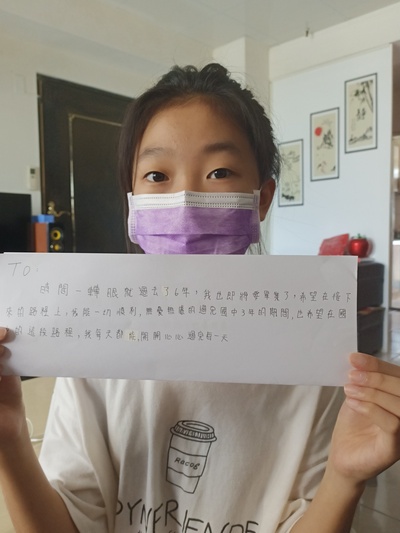 TO：
時間一轉眼就過去了6年，我也即將要畢業了，希望在接下
來的路程上，一切順利，無憂無慮的過完國中3年的期間，也希望在國
的這段路程，開開心心過每一天